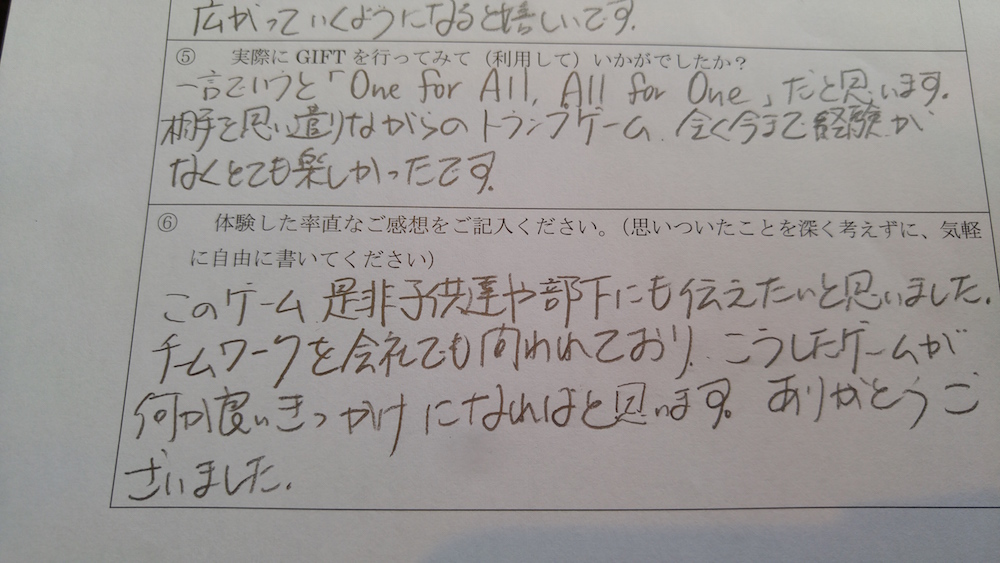 広がっていくようになると嬉しいです.
⑤ 実際に GIFT を行ってみて(利用して)いかがでしたか?
一言でいうと「One for All, All for One」だと思います.
相手を思い遣りながらのトランプゲーム. 全く今まで経験が
なくとても楽しかったです.
⑥ 体験した率直なご感想をご記入ください。(思いついたことを深く考えずに、気軽
に自由に書いてください)
このゲーム 是非子供達や部下にも伝えたいと思いました.
チームワークを会社でも問われており. こうしたゲームが
何か良いきっかけになればと思います。ありがとうご
ざいました.